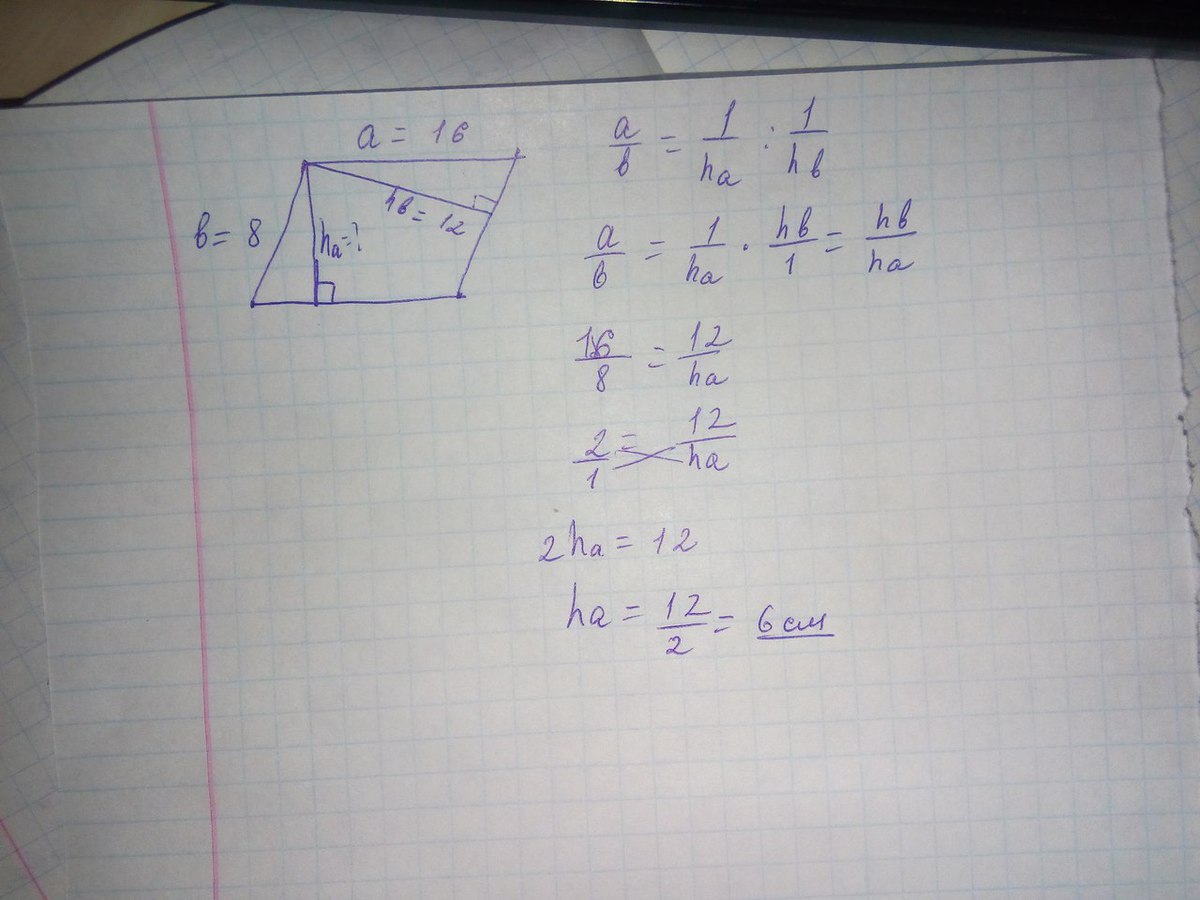 a = 16
в = 8
hв = 12
ha = ?
a/в = 1/ha : 1/hв
a/в = 1/ha · hв/1 = hв/ha
16/8 = 12/ha
2/1 = 12/ha
2ha = 12
ha = 12/2 = 6 см